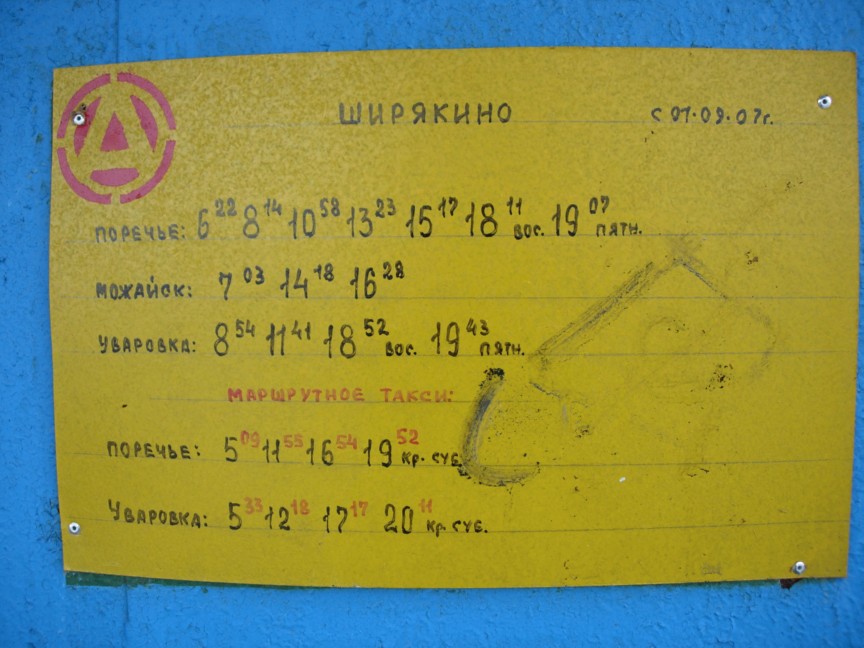 ШИРЯКИНО с 01.09.07г.
ПОРЕЧЬЕ: 6 22 8 14 10 58 13 23 15 17 18 11 вос. 19 07 пятн.
МОЖАЙСК: 7 03 14 18 16 28
УВАРОВКА: 8 54 11 41 18 52 вос. 19 43 пятн.
МАРШРУТНОЕ ТАКСИ:
ПОРЕЧЬЕ: 5 09 11 55 16 54 19 52 кр. суб.
УВАРОВКА: 5 33 12 18 17 17 20 11 кр. суб.